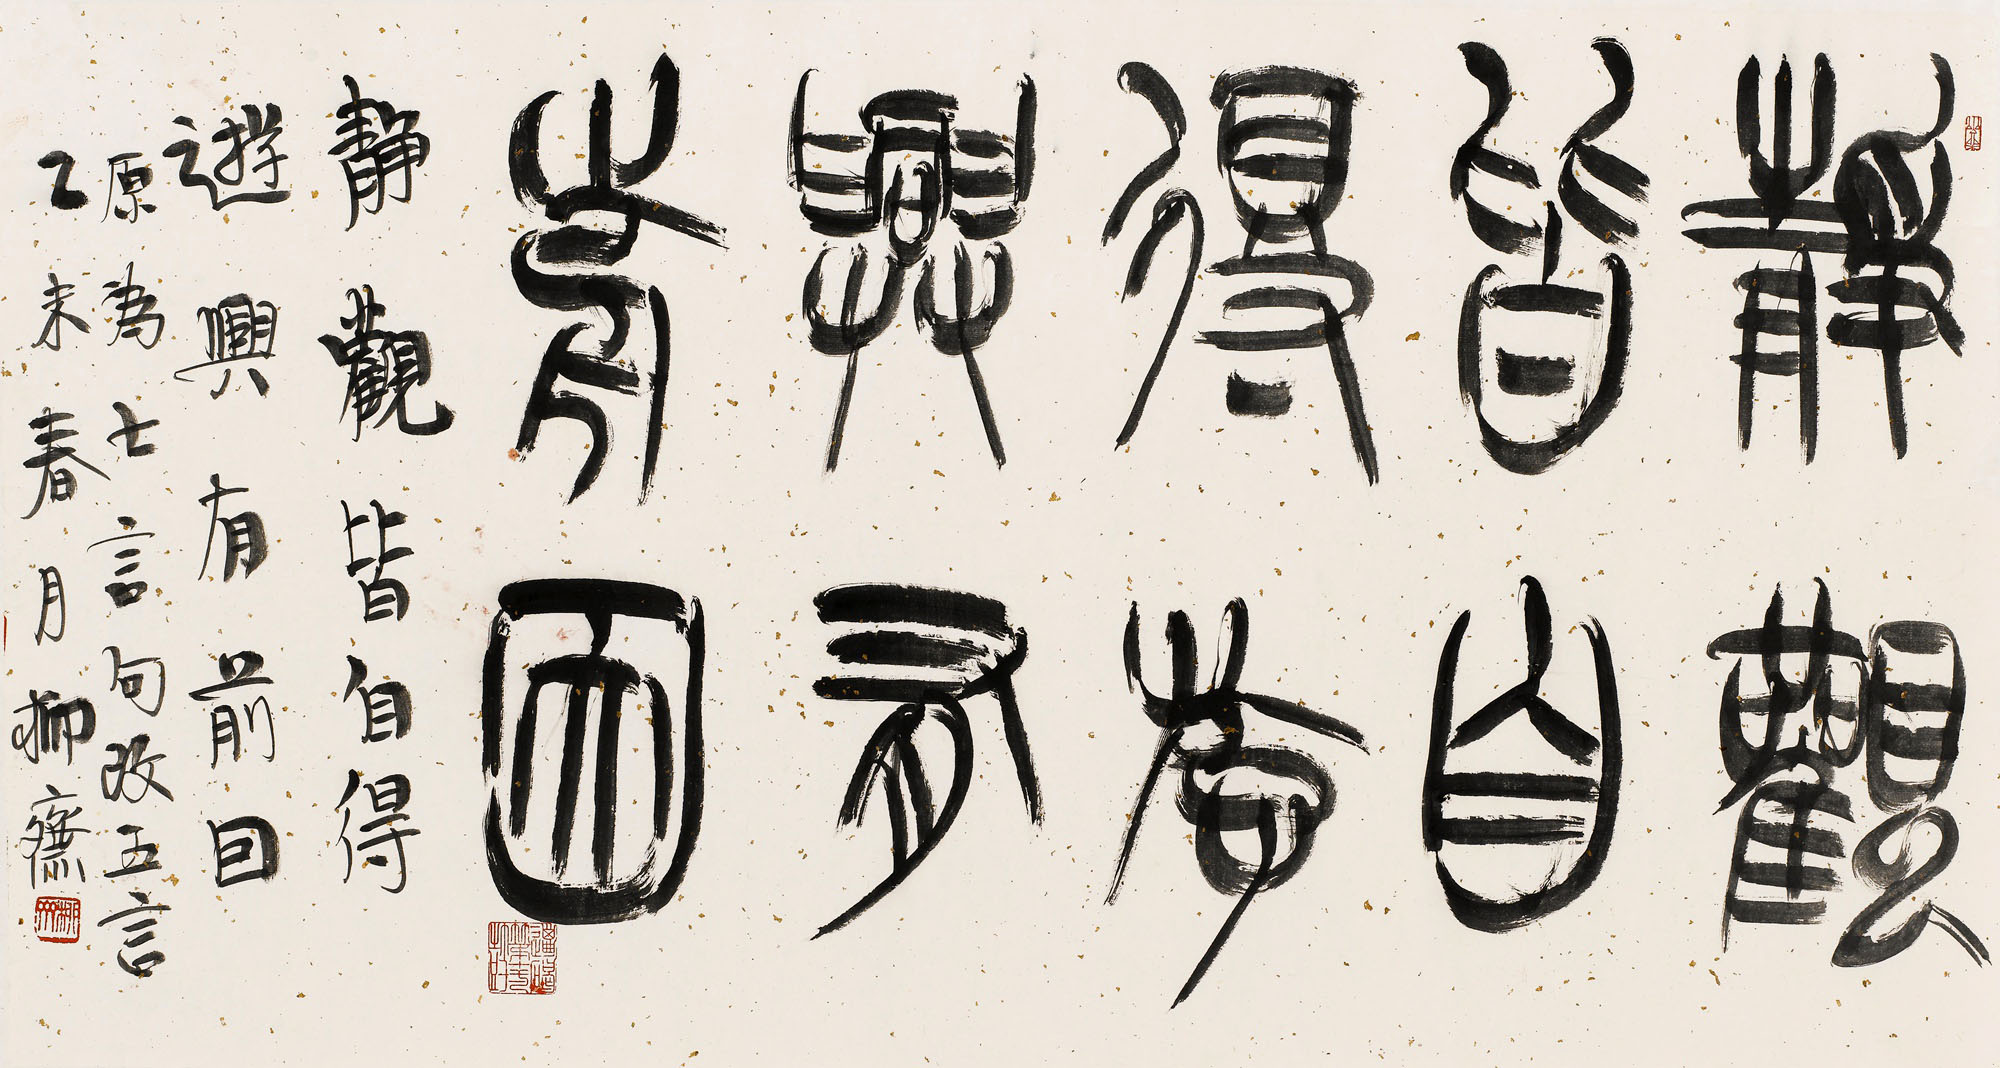 靜觀
皆自
得遊
興有
前因
靜觀皆自得
遊興有前因
原為七言句改五言
乙未春月柳齋